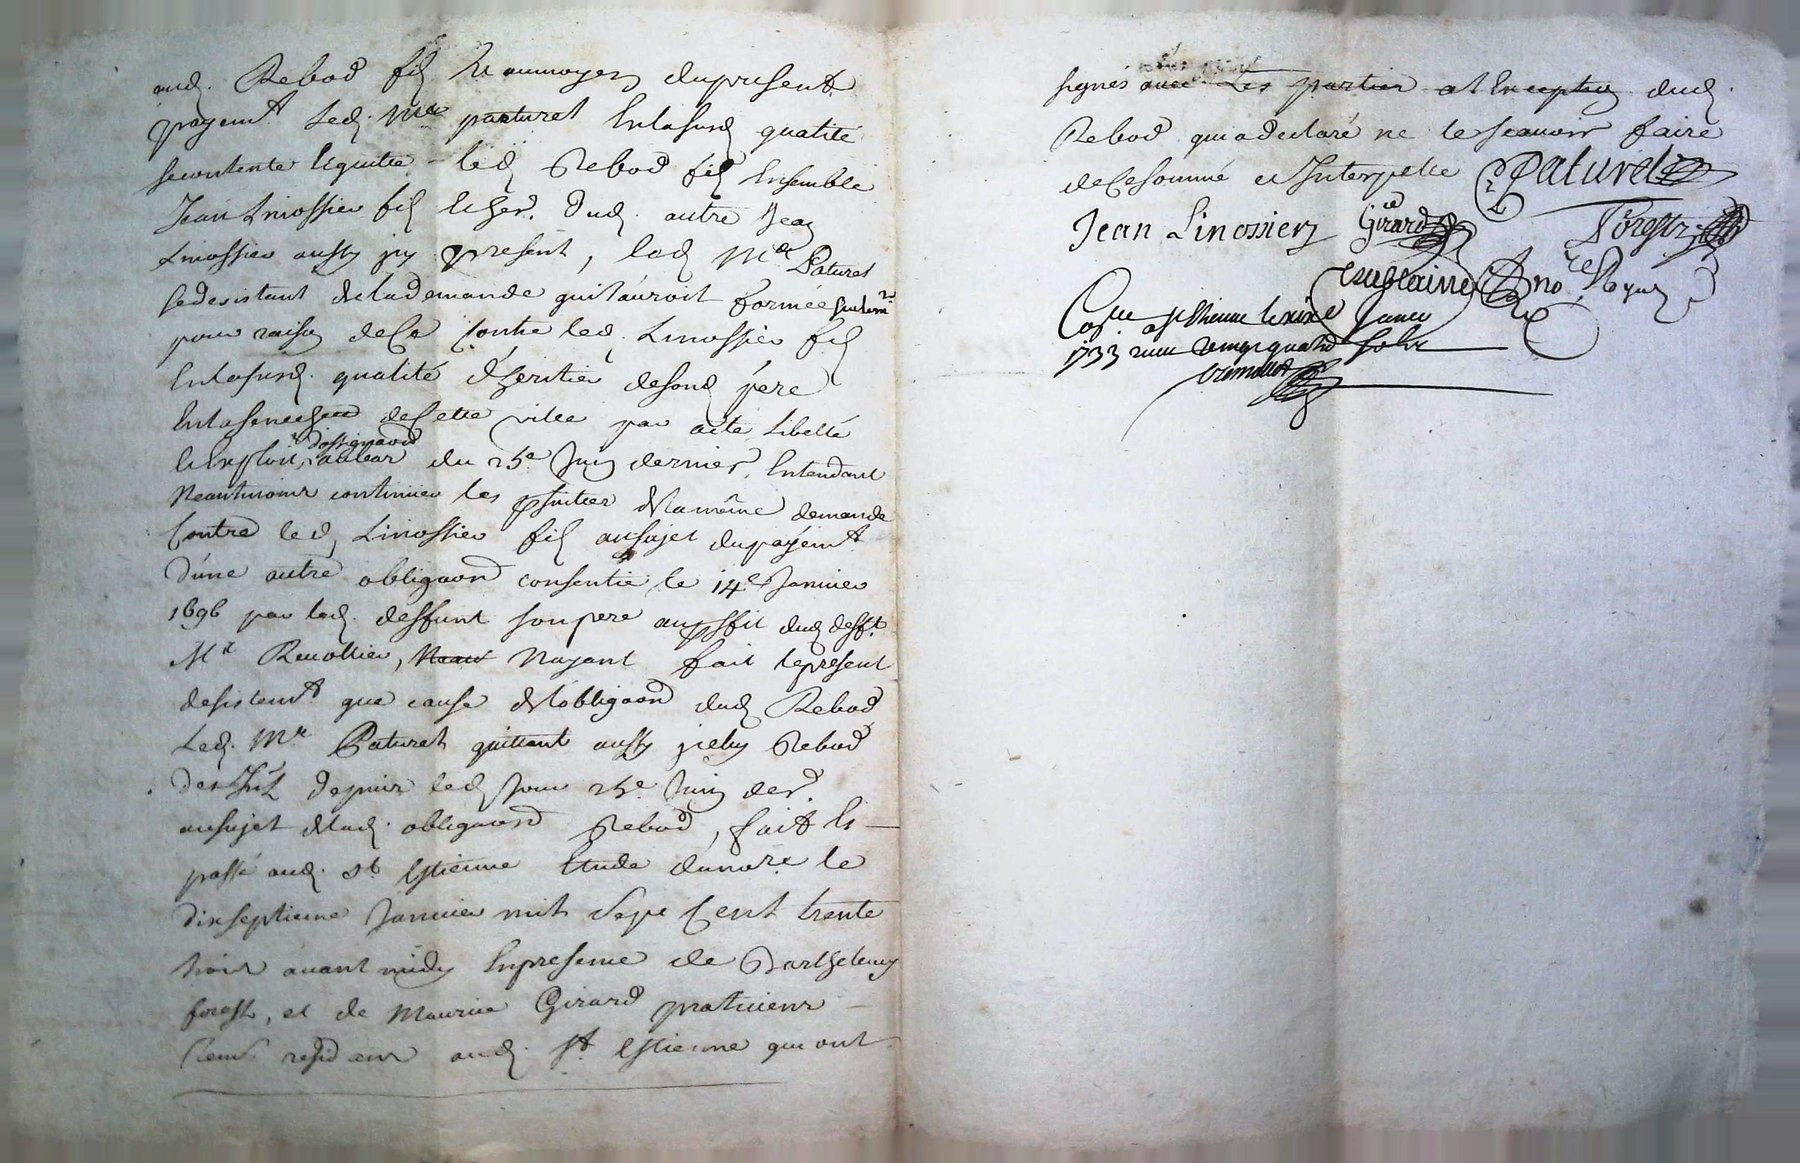 aud. Rebod fils et aumoyen dupresent
payemt. Led. Mr. paturel Enlasusd. qualité
secontente Equitte led. Rebod fils Ensemble
Jean Linossier fils heher. dud. autre Jean
Linossier aussy icy present, led. Mr. Paturel
sedesistant deladémande quilauroit formée
pour raison dece Contre led. Linossier fils
Enlasusd. qualité d'heritier desond. pere
Enlasenechee decette ville par acte Libellé
Et Exploit d'assignaõn du 25e Juin dernier, Entendant
Neantmoins continuer les psuites delamême demande
Contre led. Linossier fils ausujet dupayemt.
d'une autre obligaõn consentie le 14e Janvier
1696 par led. deffunt sonpere auproffit dud. defft.
Mr. Renollier, Nayant fait lepresent
desistemt. que cause del'obligaõn dud. Rebod
Led. Mr. Paturel quittant aussy iceluy Rebod
des Int. depuis led. Jour 25e. Juin der.
ausujet delad. obligaõn Rebod, fait Et
passé aud. St. Estienne Etude dunore. le
dixseptieme Janvier mil Sept Cent trente
trois avant midy Enpresence de Barthelemy
forest, et de Maurice Girard praticiens
Clercs residans aud. St. Estienne qui ont
signés avec Les parties alException dud.
Rebod quiadeclaré ne le scavoir faire
deCesommé et Interpellé Paturel
Jean Linossier Girard Forest
no.re Royal
Con.lle a St Etienne le Janvier
1733 reçu vingt quatre sols